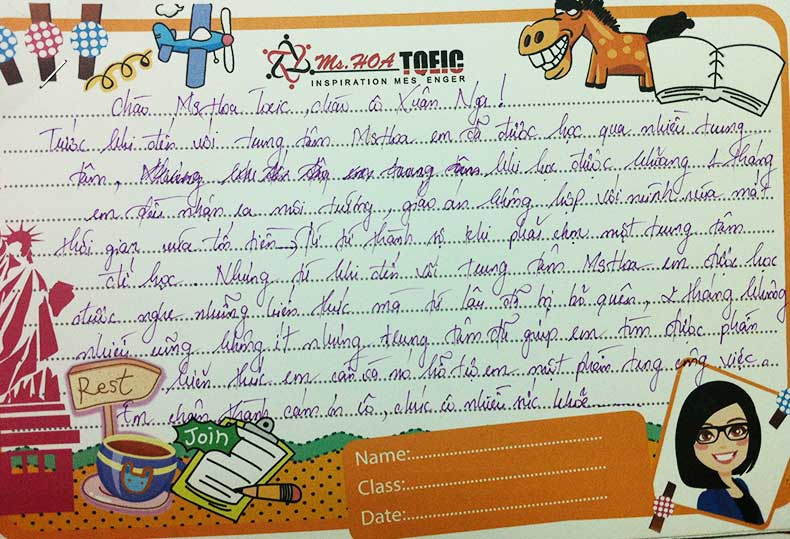 Ms.HOA TOEIC
INSPIRATION MES ENGER
Chào Ms Hoa Toeic, chào cô Xuân Nga!
Trước khi đến với trung tâm MsHoa em đã được học qua nhiều trung
tâm, khi học được khoảng 1 tháng
em đều nhận ra môi trường, giáo án không hợp với mình vừa mất
thời gian vừa tốn tiền, từ đó thành sợ khi phải chọn một trung tâm
để học. Nhưng từ khi đến với trung tâm MsHoa em được học
được nghe những kiến thức mà từ lâu đã bị bỏ quên, 2 tháng không
nhiều cũng không ít nhưng trung tâm đã giúp em tìm được phần
kiến thức em cần có nó hỗ trợ em một phần trong công việc.
Em chân thành cám ơn cô, chúc cô nhiều sức khoẻ
Rest
Join
Name:
Class:
Date: